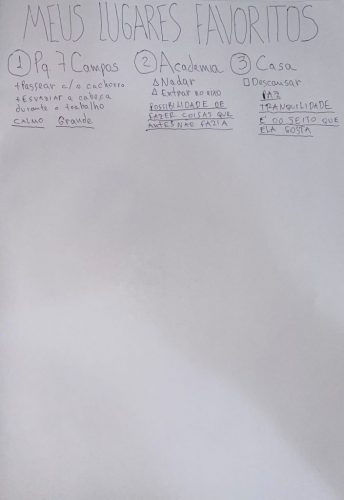 MEUS LUGARES FAVORITOS
① Pq 7 Campos
+ Passear c/o cachorro
+ Esvaziar a cabeça
durante o trabalho
CALMO Grande
② Academia
△ Nadar
△ Entrar no
POSSIBILIDADE DE
FAZER COISAS QUE
ANTES NÃO FAZIA
③ Casa
□ Descansar
PAZ
TRANQUILIDADE
É DO JEITO QUE
ELA GOSTA